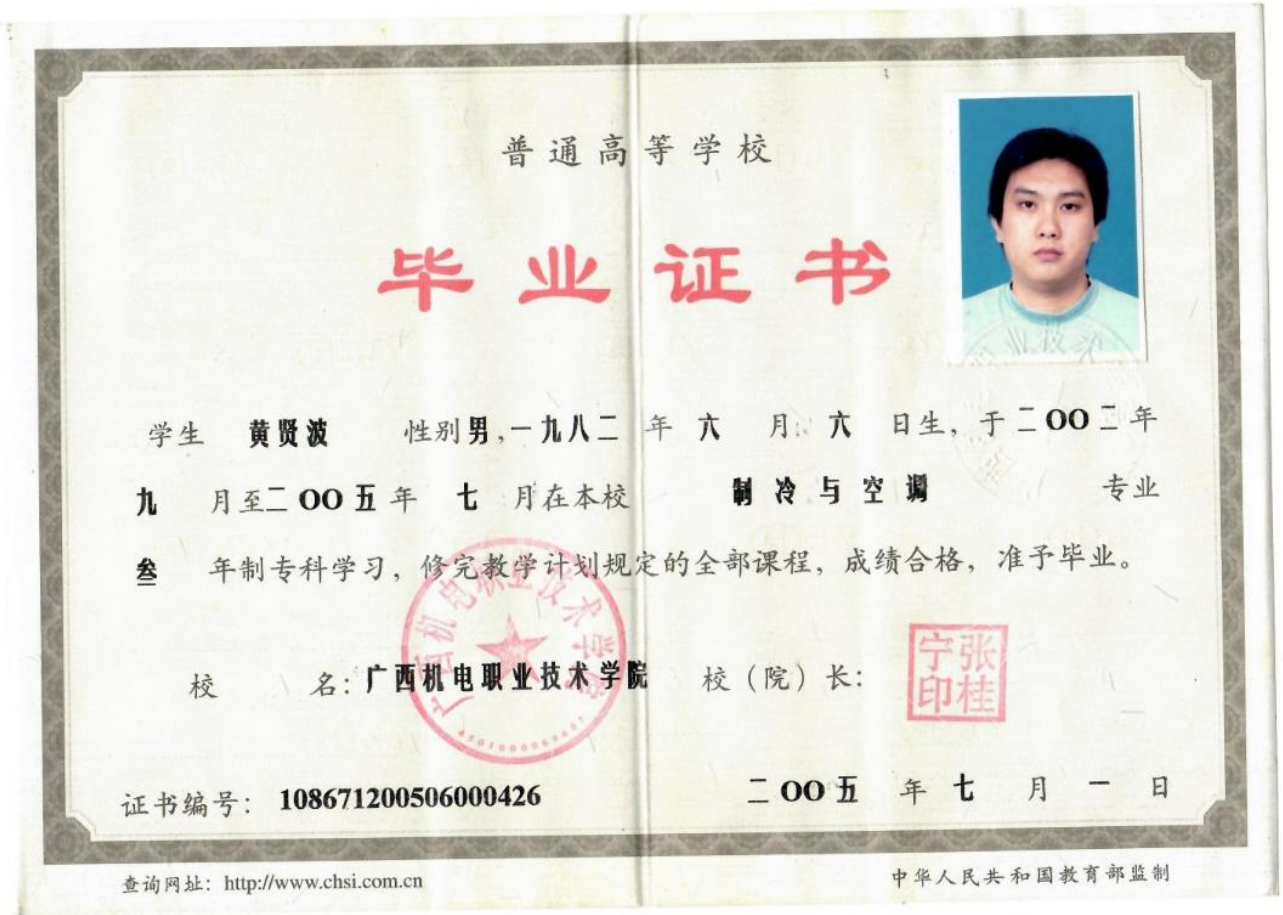 普通高等学校
毕业证书
学生 黄贤波 性别 男,一九八二 年 六 月 六 日生，于二OO二年
九 月至二OO五年 七 月在本校 制冷与空调 专业
叁 年制专科学习，修完教学计划规定的全部课程，成绩合格，准予毕业。
广西机电职业技术学院
校 名：广西机电职业技术学院 校（院）长：
张桂宁印
证书编号：108671200506000426 二OO五 年 七 月 一 日
查询网址：http://www.chsi.com.cn 中华人民共和国教育部监制